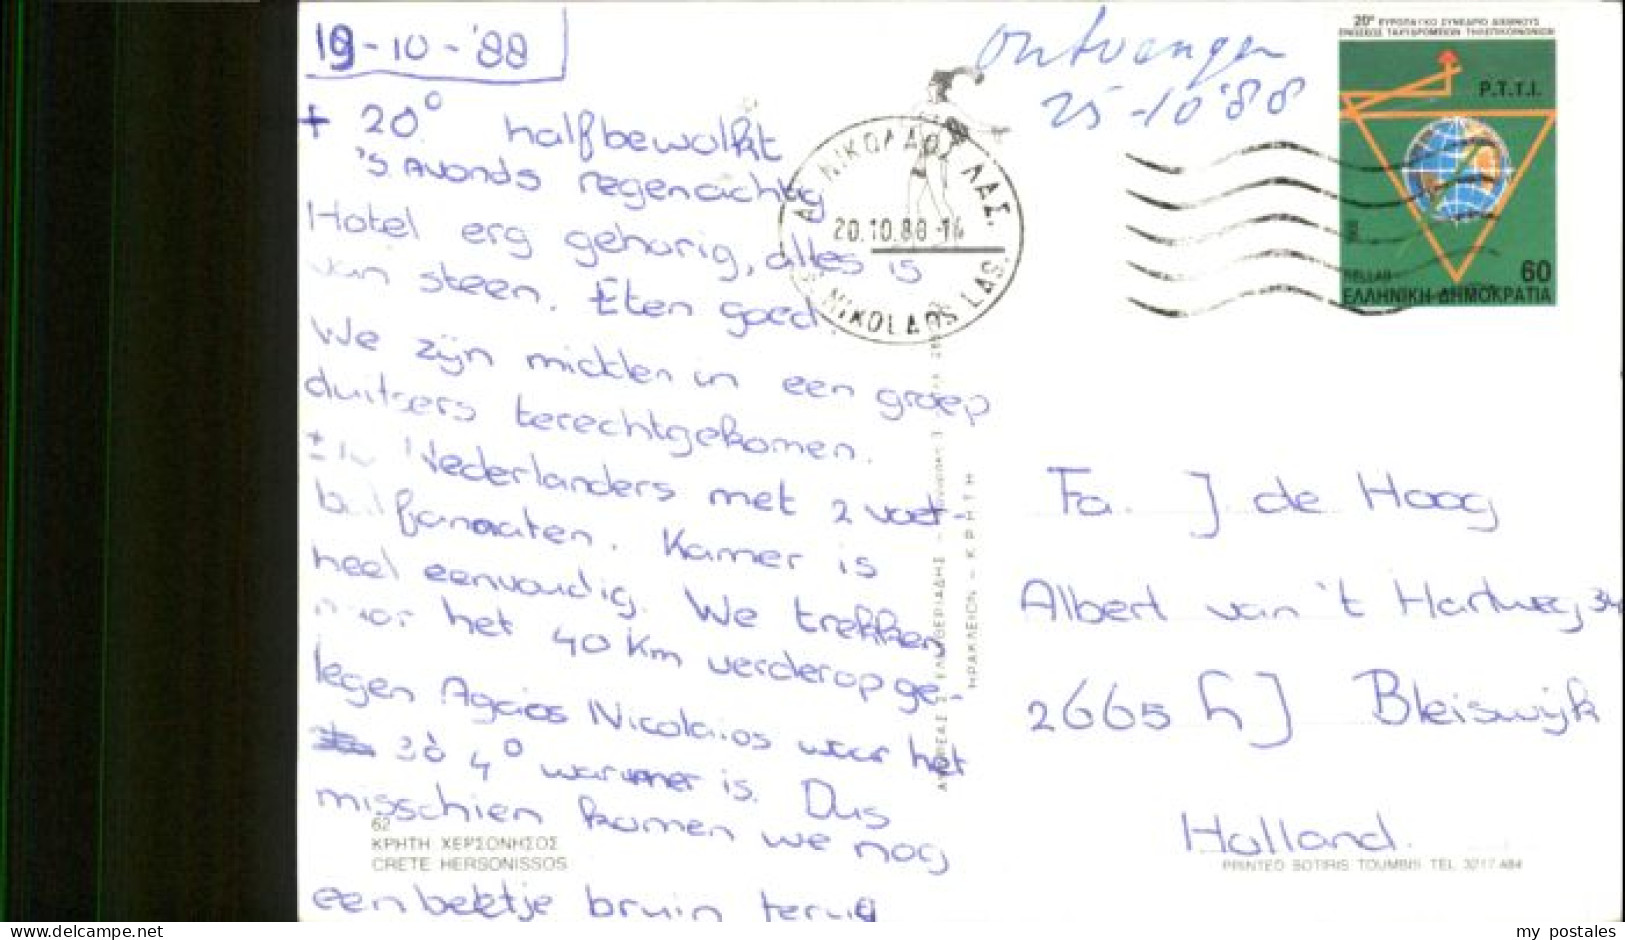 19-10-'88
+ 20° halfbewolkt
's Avonds regenachtig
Hotel erg gehorig, alles is
van steen. Eten goed.
We zijn midden in een groep
duitsers terechtgekomen.
Nederlanders met 2 voet-
bal fanaten. Kamer is
heel eenvoudig. We trekken
naar het 40 Km verderop ge-
legen Agaios Nicolaios waar het
3 à 4° warmer is. Dus
misschien komen we nog
een beetje bruin terug
62
ΚΡΗΤΗ ΧΕΡΣΟΝΗΣΟΣ
CRETE HERSONISSOS
ontvangen
25-10'88
ΝΙΚΟΛΑΟΣ ΛΑΣ.
20.10.88-14
NIKOLAOS LAS.
20° ΕΥΡΩΠΑΪΚΟ ΣΥΝΕΔΡΙΟ ΔΙΕΘΝΟΥΣ
ΕΝΩΣΕΩΣ ΤΑΧΥΔΡΟΜΕΙΩΝ ΤΗΛΕΠΙΚΟΙΝΩΝΙΩΝ
P.T.T.I.
HELLAS
60
ΕΛΛΗΝΙΚΗ ΔΗΜΟΚΡΑΤΙΑ
ΗΡΑΚΛΕΙΟΝ - ΚΡΗΤΗ
Fa. J de Hoog
Albert van 't Hartweg 34
2665 hJ Bleiswijk
Holland.
PRINTED SOTIRIS TOUMBIS TEL. 3217.484
delcampe.net
my_postales